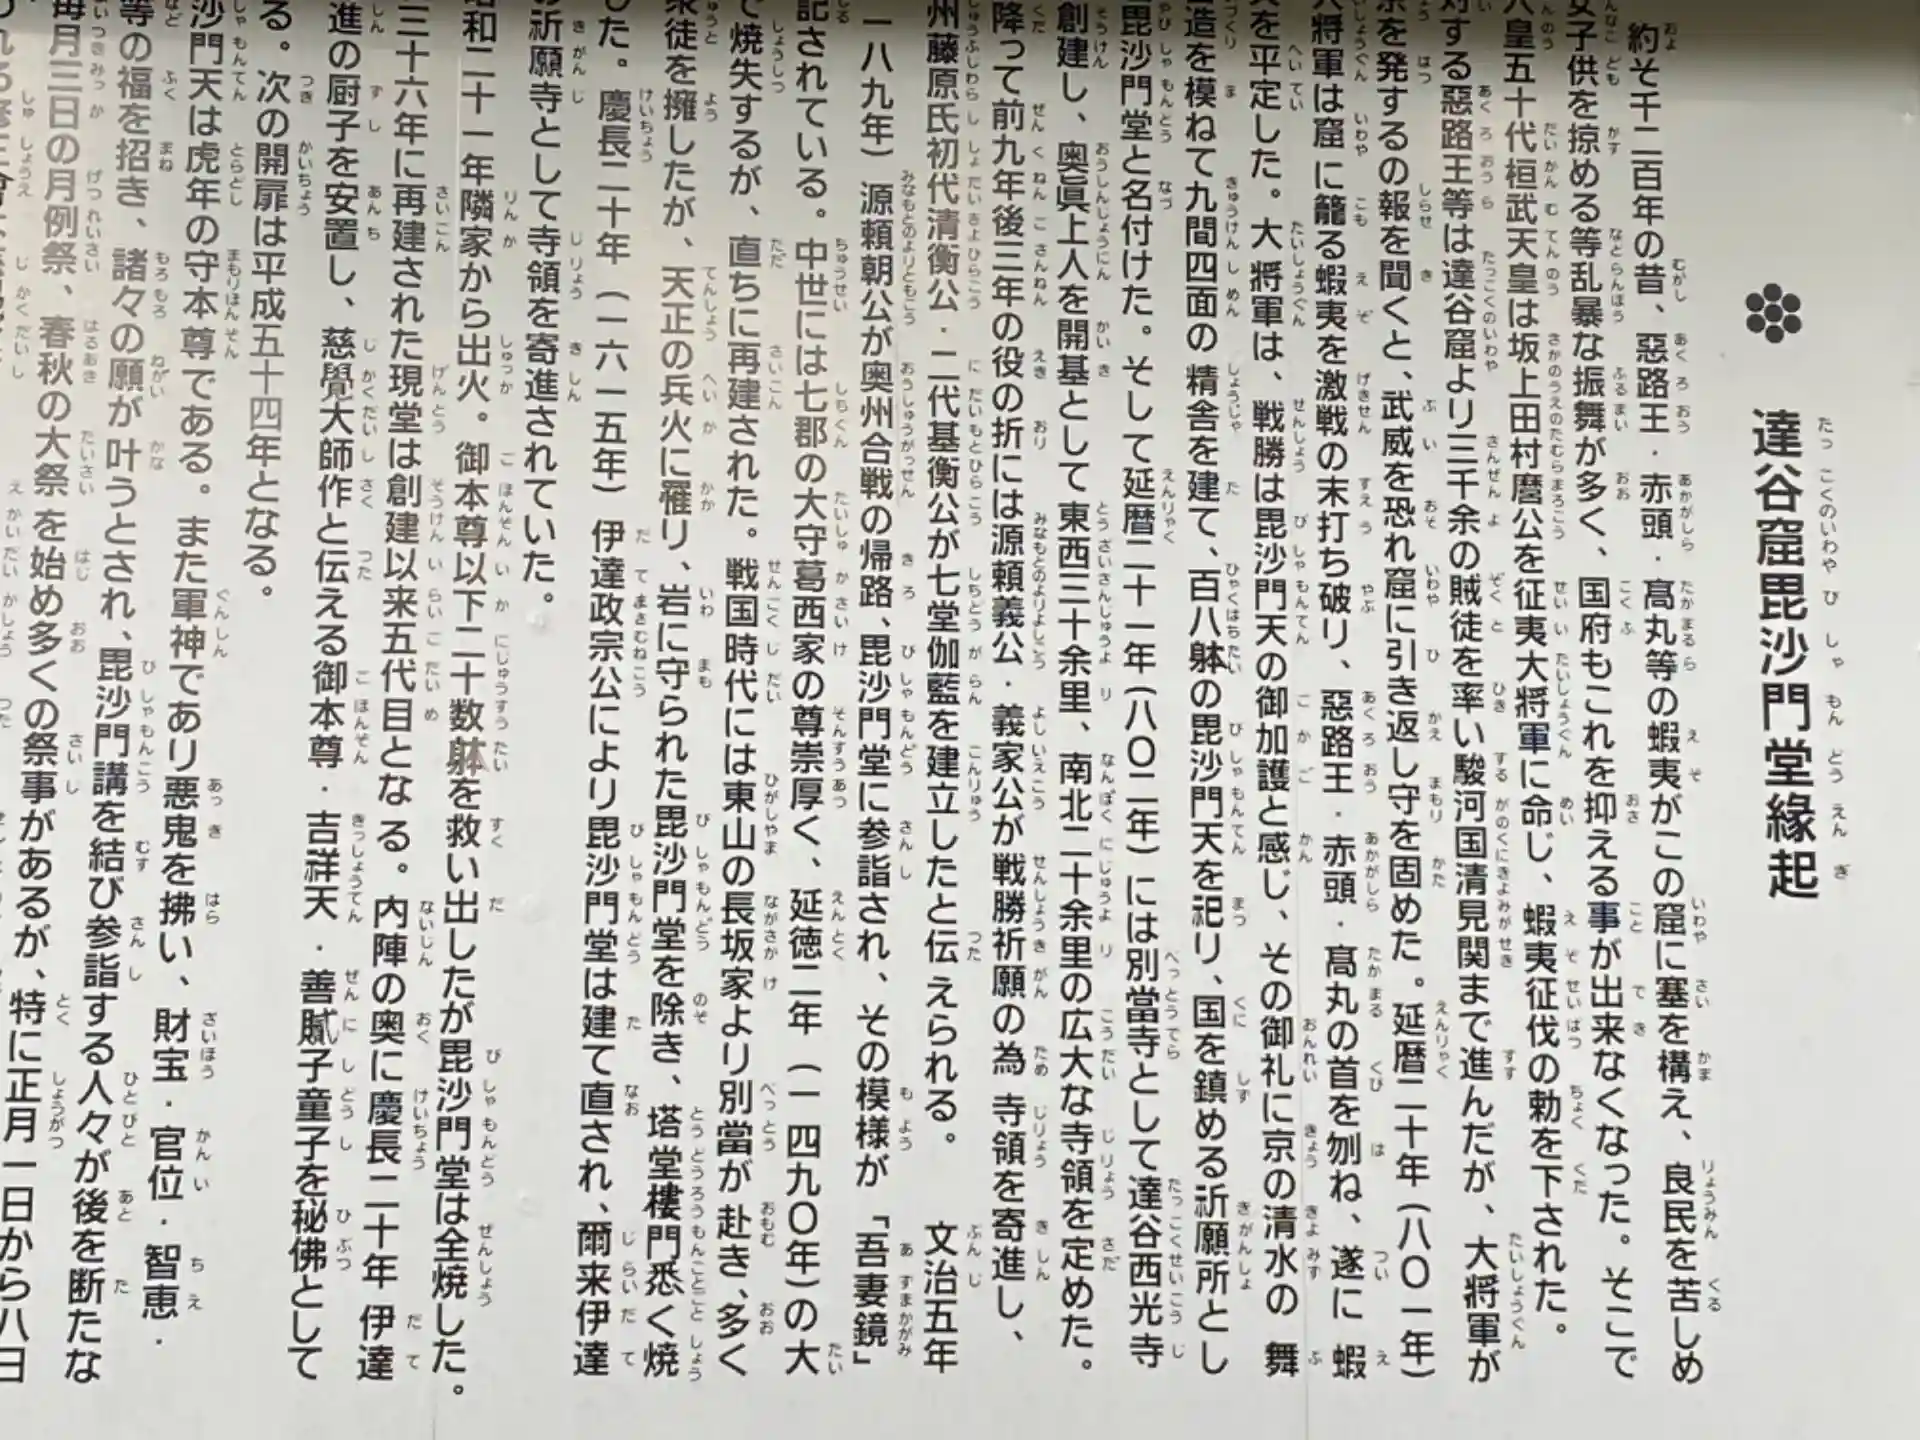 達谷窟毘沙門堂縁起
約そ千二百年の昔、惡路王・赤頭・髙丸等の蝦夷がこの窟に塞を構え、良民を苦しめ
女子供を掠める等乱暴な振舞が多く、国府もこれを抑える事が出来なくなった。そこで
人皇五十代桓武天皇は坂上田村麿公を征夷大将軍に命じ、蝦夷征伐の勅を下された。
対する惡路王等は達谷窟より三千余の賊徒を率い駿河国清見関まで進んだが、大将軍が
京を発するの報を聞くと、武威を恐れ窟に引き返し守を固めた。延暦二十年(八〇一年)
大将軍は窟に籠る蝦夷を激戦の末打ち破り、惡路王・赤頭・髙丸の首を刎ね、遂に蝦
夷を平定した。大将軍は、戦勝は毘沙門天の御加護と感じ、その御礼に京の清水の舞
造を模ねて九間四面の精舎を建て、百八躰の毘沙門天を祀り、国を鎮める祈願所とし
毘沙門堂と名付けた。そして延暦二十一年(八〇二年)には別當寺として達谷西光寺
創建し、奥眞上人を開基として東西三十余里、南北二十余里の広大な寺領を定めた。
降って前九年後三年の役の折には源頼義公・義家公が戦勝祈願の為寺領を寄進し、
州藤原氏初代清衡公・二代基衡公が七堂伽藍を建立したと伝えられる。 文治五年
一八九年)源頼朝公が奥州合戦の帰路、毘沙門堂に参詣され、その模様が「吾妻鏡」
記されている。中世には七郡の大守葛西家の尊崇厚く、延徳二年(一四九〇年)の大
で焼失するが、直ちに再建された。戦国時代には東山の長坂家より別當が赴き、多く
衆徒を擁したが、天正の兵火に罹り、岩に守られた毘沙門堂を除き、塔堂樓門悉く焼
した。慶長二十年(一六一五年)伊達政宗公により毘沙門堂は建て直され、爾来伊達
祈願寺として寺領を寄進されていた。
昭和二十一年隣家から出火。御本尊以下二十数躰を救い出したが毘沙門堂は全焼した。
三十六年に再建された現堂は創建以来五代目となる。内陣の奥に慶長二十年伊達
進の厨子を安置し、慈覺大師作と伝える御本尊・吉祥天・善膩子童子を秘佛として
る。次の開扉は平成五十四年となる。
沙門天は虎年の守本尊である。また軍神であり悪鬼を拂い、財宝・官位・智恵・
等の福を招き、諸々の願が叶うとされ、毘沙門講を結び参詣する人々が後を断たな
毎月三日の月例祭、春秋の大祭を始め多くの祭事があるが、特に正月一日から八日